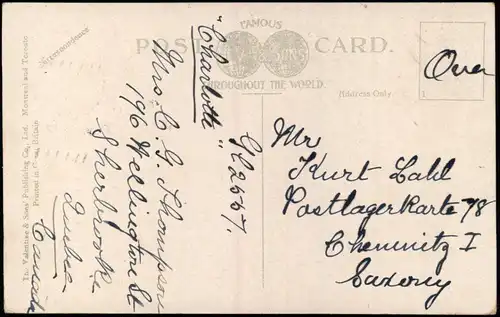 FAMOUS
POST CARD.
V & SONS
THROUGHOUT THE WORLD.
Correspondence
Address Only
Over
The Valentine & Sons' Publishing Co., Ltd., Montreal and Toronto
Printed in Great Britain
"Charlotte"
G12557.
Mrs. C. G. Thompson
196 Wellington St
Sherbrooke
Quebec
Canada
Mr
Kurt Lahl
Postlagerkarte 78
Chemnitz I
Saxony